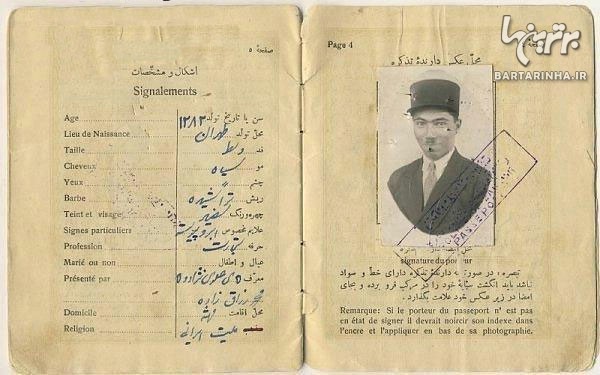 صفحهٔ ۵
اشکال و مشخّصات
Signalements
Age ۱۲۸۲ سن یا تاریخ تولد
Lieu de Naissance طهران محلّ تولد
Taille وسط قد
Cheveux سیاه مو
Yeux چشم
Barbe تراشیده ریش
Teint et visage چهره و رنگ
Signes particuliers ابرو پیوسته علایم مخصوص
Profession تجارت حرفه
Marié ou non عیال و اطفال
Présenté par معرّف
رزاق زاده
Domicile محلّ اقامت
Religion ملیت ایرانی مذهب
Page 4
محلّ عکس دارندهٔ تذکره
برترینها
BARTARINHA.IR
PASSEPORT
signature du porteur
تبصره، در صورتیکه دارندهٔ تذکره دارای خطّ و سواد
نباشد باید انگشت سبّابهٔ خود را در مرکب فرو برده و بجای
امضا در زیر عکس خود علامت بگذارد.
Remarque: Si le porteur du passeport n' est pas
en état de signer il devrait noircir son indexe dans
l'encre et l'appliquer en bas de sa photographie.